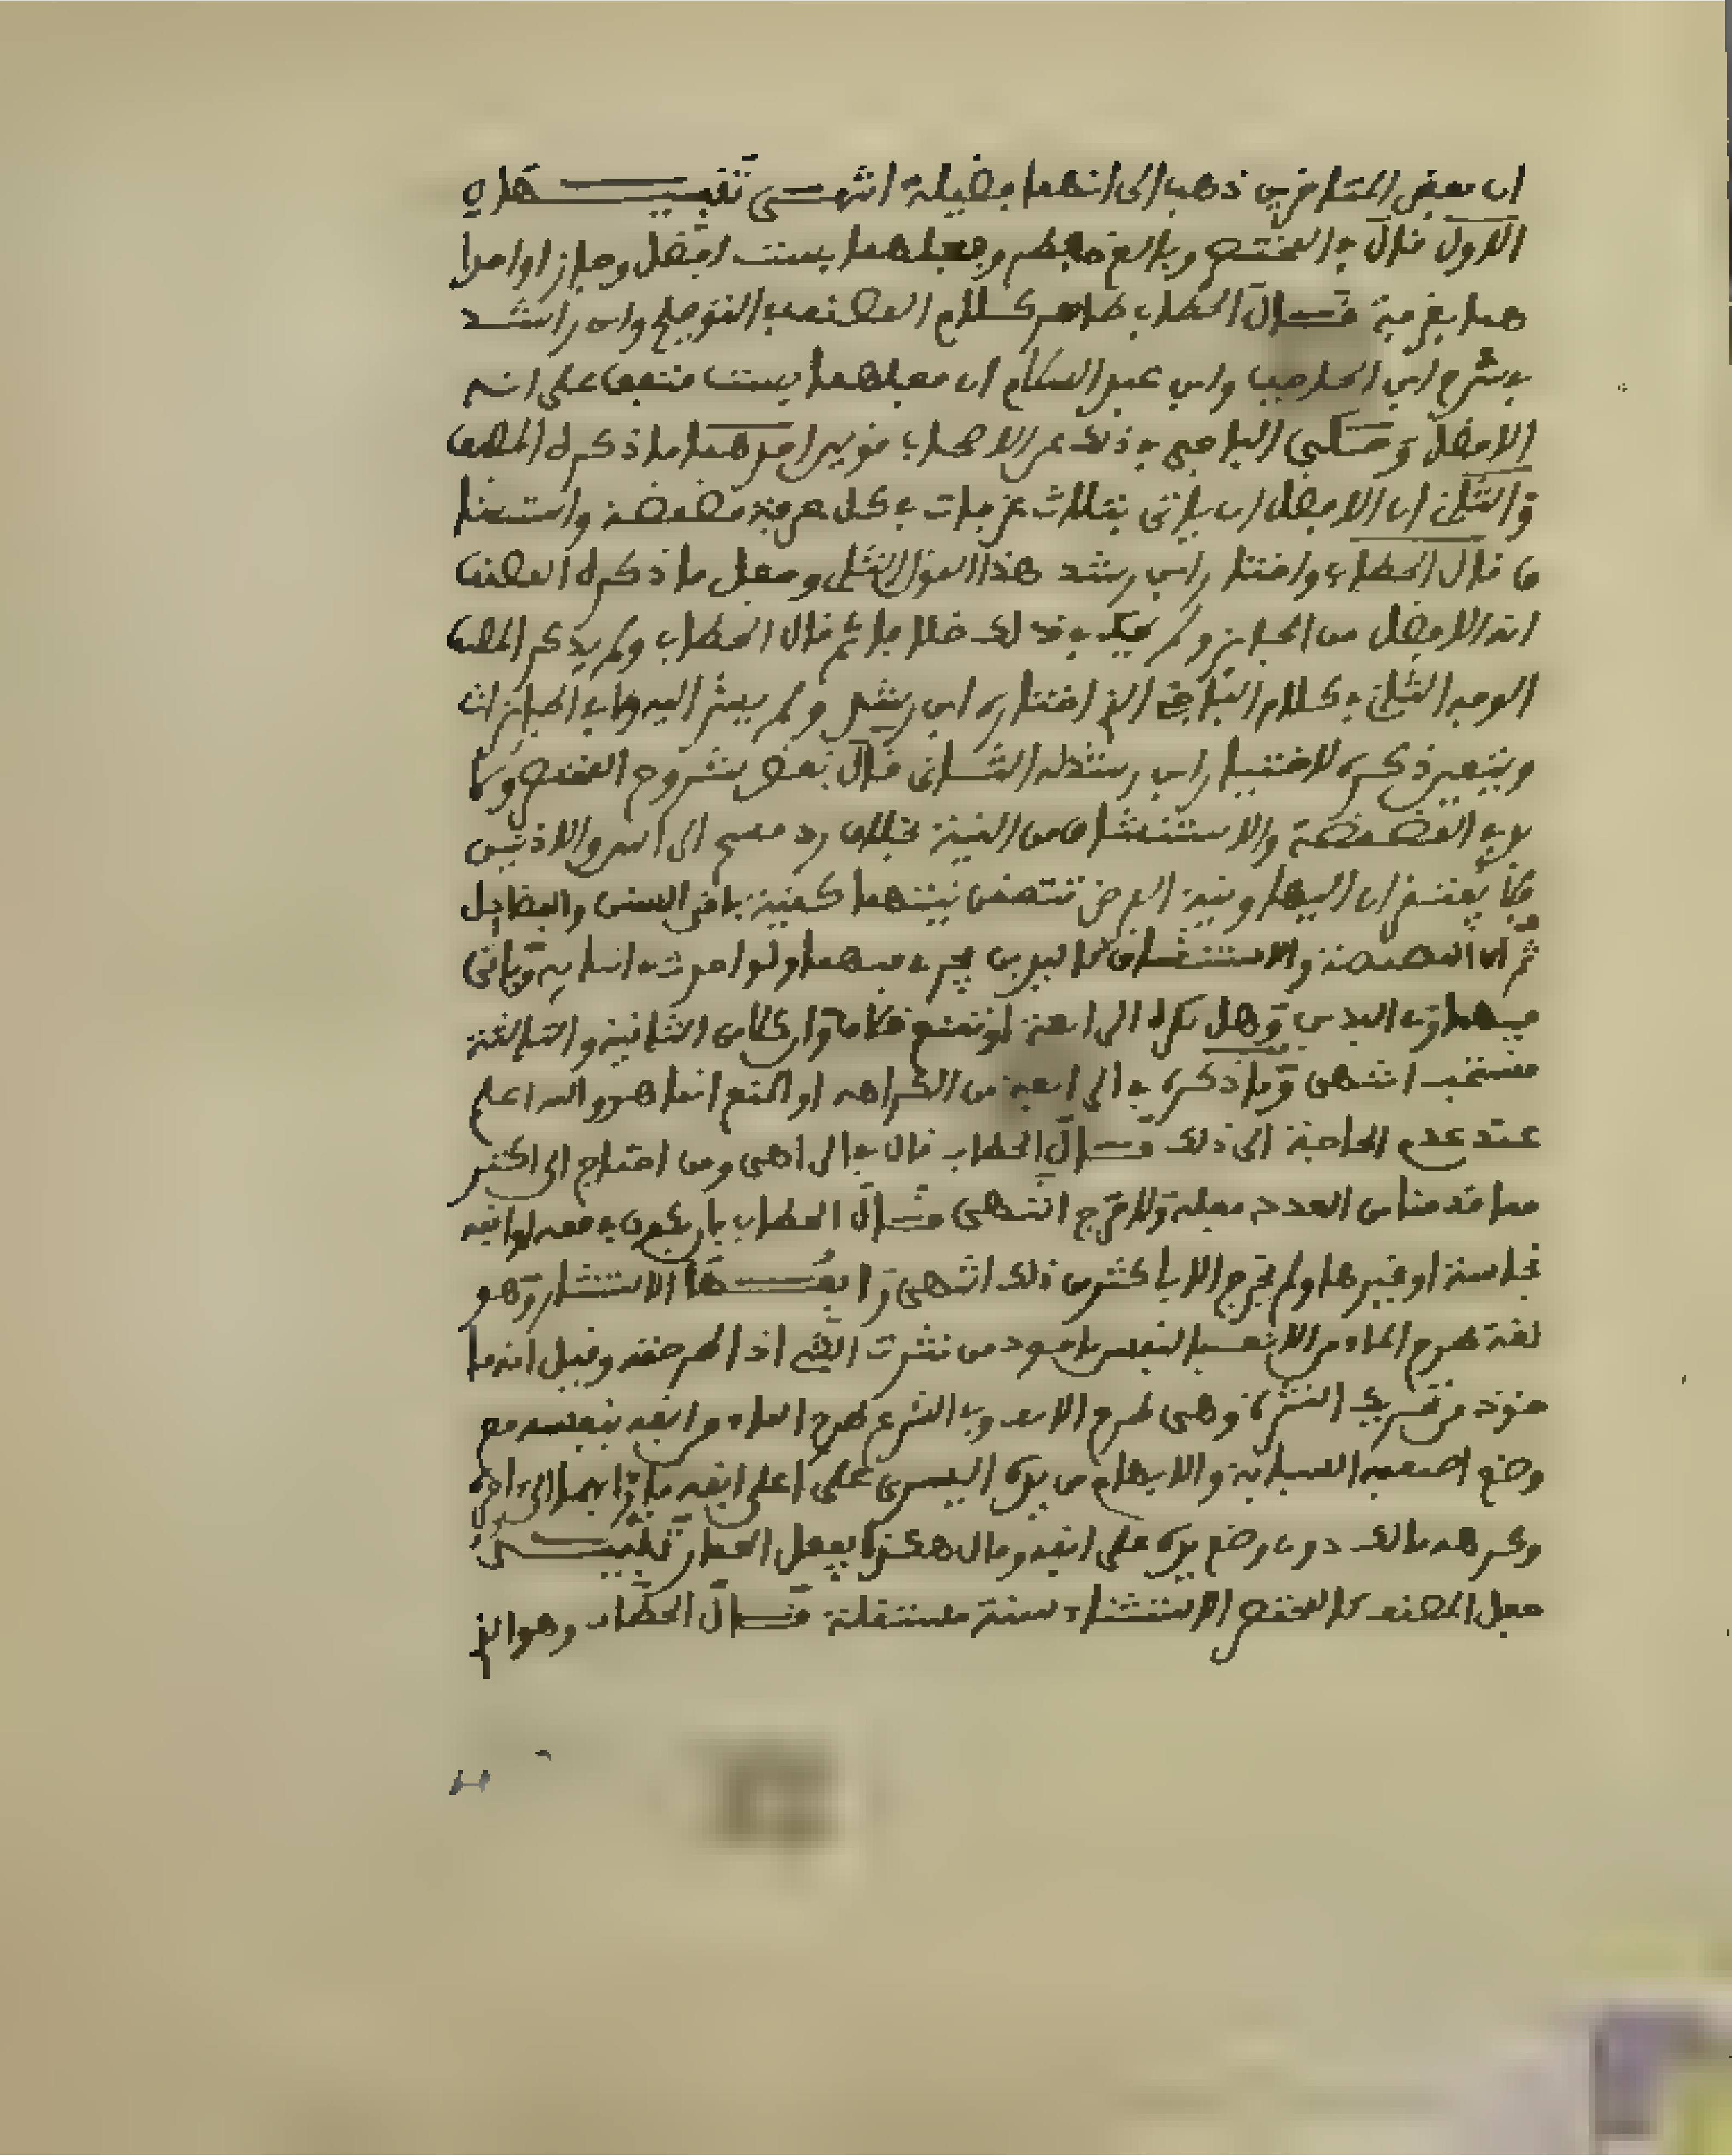 ان بعض المتاخرين ذهب الى انهما فضيلة انتهى تنبيهات
الاول قال في المختصر وبالغ مفطر وفعلهما بست افضل وجاز او احدا
هما بغرفة قال الحطاب ظاهر كلام المصنف التوضيح وابن راشد
في شرح ابن الحاجب وابن عبد السلام ان فعلهما بست متفق على انه
الافضل وحكى الباجي في ذلك عن الاصحاب قولين احدهما ما ذكره المصنف
والثاني ان الافضل ان ياتي بثلاث غرفات في كل غرفة مضمضة واستنشا
ق قال الحطاب واختار ابن رشد هذا القول الثاني وجعل ما ذكره المصنف
انه الافضل من الجائز ولم يحك في ذلك خلافا ثم قال الحطاب ولم يذكر المصنف
الوجه الثاني في كلام الباجي الذي اختاره ابن رشد ولم يشر اليه في باب الجائزات
ويتعين ذكره لاختيار ابن رشد له الثاني قال بعض شروح المختصر ولا
بد في المضمضة والاستنشاق من النية بخلاف رد مسح الراس والاذنين
فلا يفتقران اليها ونية الفرض تتضمن نيتهما كنية باقي السنن والفضايل
ثم ان المضمضة والاستنشاق كاليدين يجري فيهما ولو احدث في اثنايه وياتي
فيهما في اليدين وهل تكره الرابعة او تمنع خلاف وان كلا من الثانية والثالثة
مستحب انتهى وما ذكره في الرابعة من الكراهة او المنع انما هو والله اعلم
عند عدم الحاجة الى ذلك قال الحطاب قال في الزاهي ومن احتاج الى اكثر
مما قدمنا من العدد فعله ولا حرج انتهى قال الحطاب بان يكون في فمه او انفه
نجاسة او غيرها ولم تخرج الا باكثر من ذلك انتهى ورابعها الاستنثار وهو
لغة طرح الماء من الانف بالنفس ماخوذ من نثرت الشيء اذا طرحته وقيل انه ما
خوذ من تحريك النثرة وهي طرف الانف وفي الشرع طرح الماء من انفه بنفسه مع
وضع اصبعيه السبابة والابهام من يده اليسرى على اعلى انفه
وكرهه مالك دون وضع يده على انفه وقال هكذا يفعل الحمار تنبيه
جعل المصنف كالمختصر الاستنثار سنة مستقلة قال الحطاب وهو الذي